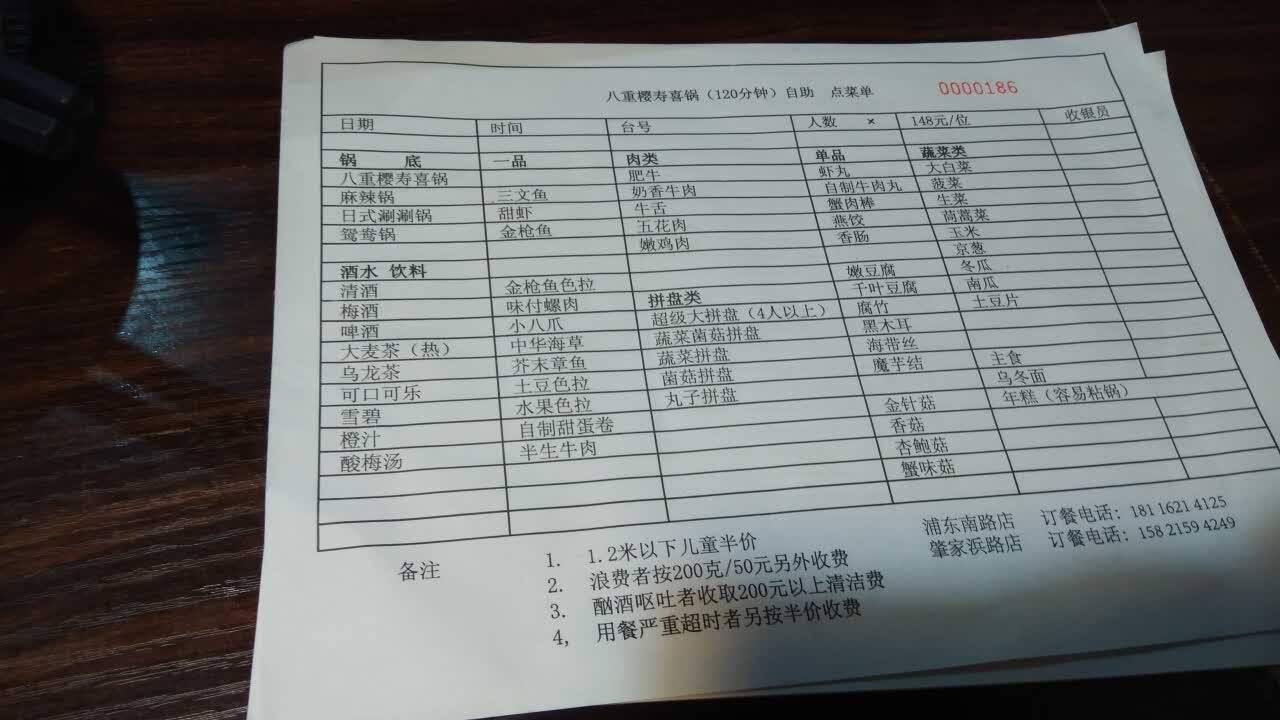 八重樱寿喜锅（120分钟）自助 点菜单 0000186
日期 时间 台号 人数 × 148元/位 收银员
锅 底 一品 肉类 单品 蔬菜类
八重樱寿喜锅 肥牛 虾丸 大白菜
麻辣锅 三文鱼 奶香牛肉 自制牛肉丸 菠菜
日式涮涮锅 甜虾 牛舌 蟹肉棒 生菜
鸳鸯锅 金枪鱼 五花肉 燕饺 茼蒿菜
嫩鸡肉 香肠 玉米
京葱
酒水 饮料 嫩豆腐 冬瓜
清酒 金枪鱼色拉 拼盘类 千叶豆腐 南瓜
梅酒 味付螺肉 超级大拼盘（4人以上） 腐竹 土豆片
啤酒 小八爪 蔬菜菌菇拼盘 黑木耳
大麦茶（热） 中华海草 蔬菜拼盘 海带丝
乌龙茶 芥末章鱼 菌菇拼盘 魔芋结 主食
可口可乐 土豆色拉 丸子拼盘 乌冬面
雪碧 水果色拉 金针菇 年糕（容易粘锅）
橙汁 自制甜蛋卷 香菇
酸梅汤 半生牛肉 杏鲍菇
蟹味菇
备注
1. 1.2米以下儿童半价
2. 浪费者按200克/50元另外收费
3. 酗酒呕吐者收取200元以上清洁费
4, 用餐严重超时者另按半价收费
浦东南路店 订餐电话：181 1621 4125
肇家浜路店 订餐电话：158 2159 4249